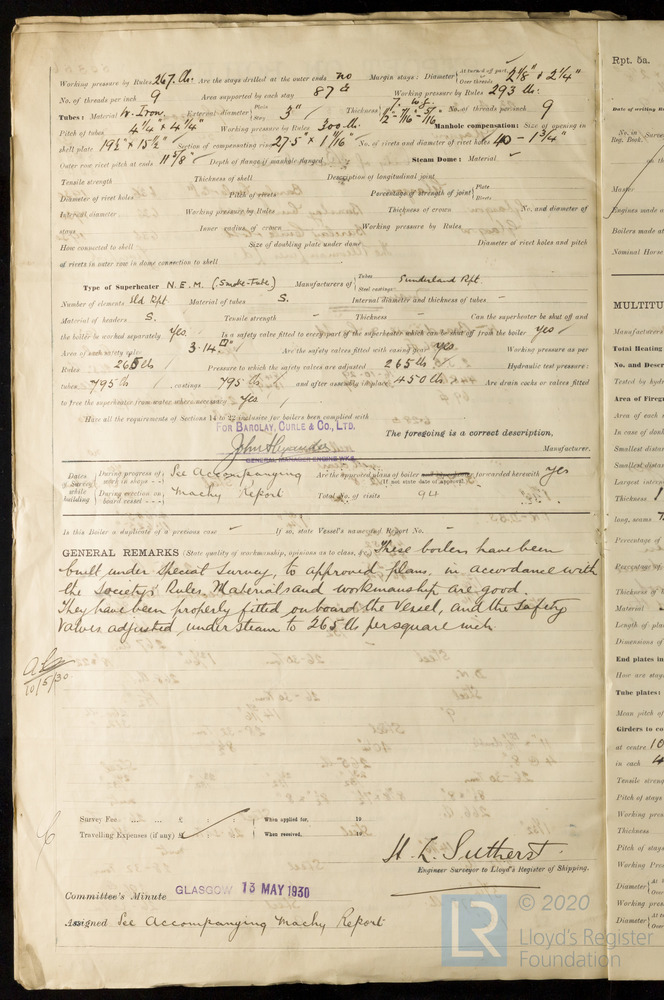 Working pressure by Rules 267 lb. Are the stays drilled at the outer ends no Margin stays: Diameter { At turned off part, or Over threads 2 1/8" & 2 1/4"
No. of threads per inch 9 Area supported by each stay 87 Working pressure by Rules 293 lb.
Tubes: Material W. Iron External diameter { Plain Stay 3" Thickness No. of threads per inch 9
Pitch of tubes 4 1/4" x 4 1/4" Working pressure by Rules 300 lb. Manhole compensation: Size of opening in
shell plate 19 1/2" x 15 1/2" Section of compensating ring 27.5" x 1 11/16" No. of rivets and diameter of rivet holes 40 - 1 3/4"
Outer row rivet pitch at ends 11 5/8" Depth of flange if manhole flanged Steam Dome: Material -
Tensile strength Thickness of shell Description of longitudinal joint
Diameter of rivet holes Pitch of rivets Percentage of strength of joint { Plate Rivets
Internal diameter Working pressure by Rules Thickness of crown No. and diameter of
stays Inner radius of crown Working pressure by Rules
How connected to shell Size of doubling plate under dome Diameter of rivet holes and pitch
of rivets in outer row in dome connection to shell
Type of Superheater N.E.M. (Smoke-Tube) Manufacturers of { Tubes Steel castings Sunderland Rpt.
Number of elements Sld Rpt. Material of tubes S. Internal diameter and thickness of tubes -
Material of headers S. Tensile strength - Thickness - Can the superheater be shut off and
the boiler be worked separately Yes. Is a safety valve fitted to every part of the superheater which can be shut off from the boiler Yes
Area of each safety valve 3.14 □" Are the safety valves fitted with easing gear Yes Working pressure as per
Rules 265 lb Pressure to which the safety valves are adjusted 265 lb Hydraulic test pressure:
tubes 795 lb, castings 795 lb and after assembly in place 450 lb. Are drain cocks or valves fitted
to free the superheater from water where necessary Yes
Have all the requirements of Sections 14 to 22 inclusive for boilers been complied with
FOR BARCLAY, CURLE & CO., LTD.
The foregoing is a correct description,
John Alexander Manufacturer.
GENERAL MANAGER ENGINE WKS.
Dates of Survey while building { During progress of work in shops - - See Accompanying Are the approved plans of boiler forwarded herewith Yes
(If not state date of approval.)
During erection on board vessel - - - Machy Report Total No. of visits 94
Is this Boiler a duplicate of a previous case - If so, state Vessel's name and Report No. -
GENERAL REMARKS (State quality of workmanship, opinions as to class, &c. These boilers have been
built under Special Survey, to approved plans, in accordance with
the Society's Rules, Materials and workmanship are good.
They have been properly fitted onboard the Vessel, and the Safety
Valves adjusted under steam to 265 lb per square inch.
10/5/30
Survey Fee ... ... £ : : When applied for, 19
Travelling Expenses (if any) £ : : When received, 19
H. L. Sutherst.
Engineer Surveyor to Lloyd's Register of Shipping.
Committee's Minute GLASGOW 13 MAY 1930
Assigned See Accompanying Machy Report
Rpt. 5a.
Date of writing Re
No. in Reg. Book.
Master
Engines made a
Boilers made at
Nominal Horse
MULTITU
Manufacturers
Total Heating
No. and Descr
Tested by hydr
Area of Firegr
Area of each s
In case of donk
Smallest distan
Smallest distan
Largest intern
Thickness
long. seams
Percentage of
Percentage of
Thickness of
Material
Length of pla
Dimensions of
End plates in
How are stay
Tube plates:
Mean pitch of
Girders to co
at centre 10
in each 4
Tensile streng
Pitch of stays
Working pres
Thickness
Pitch of stays
Working Pres
Diameter { At t Over
Working pres
Diameter { At t Over
LR © 2020
Lloyd's Register
Foundation